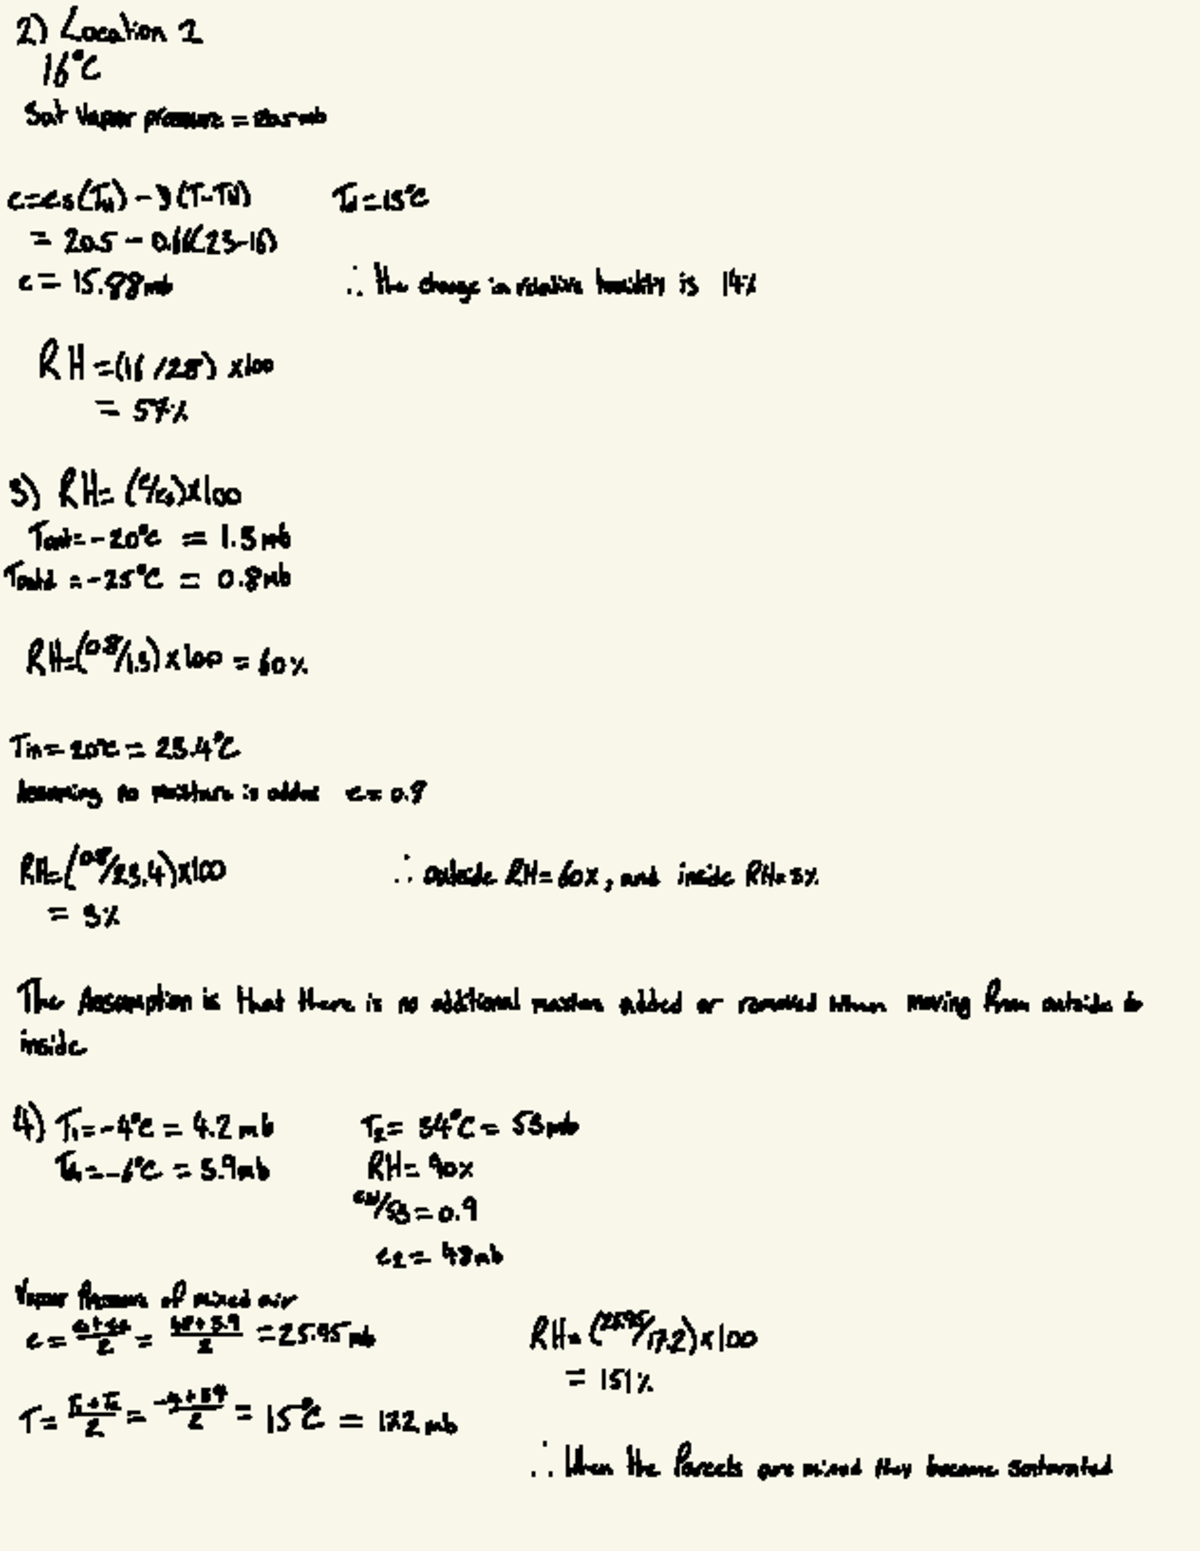 2) Location 2
16°C
Sat Vapor pressure = 20.5 mb
e = es(Tw) - γ(T-Tw) Td = 15°C
= 20.5 - 0.66(23-16)
e = 15.88mb ∴ the change in relative humidity is 14%
RH = (16/28) x100
= 57%
3) RH = (e/es)x100
Tout = -20°C = 1.3 mb
Toutd = -25°C = 0.8mb
RH = (0.8/1.3) x 100 = 60%
Tin = 20°C = 23.4°C
Assuming no moisture is added e = 0.8
RH = (0.8/23.4)x100 ∴ outside RH = 60%, and inside RH = 3%
= 3%
The Assumption is that there is no additional moisture added or removed when moving from outside to
inside
4) T₁ = -4°C = 4.2 mb T₂ = 34°C = 53mb
Td₁ = -6°C = 3.9mb RH = 90%
/53 = 0.9
e₂ = 48mb
Vapor Pressure of mixed air
e = e₁+e₂/2 = 48+3.9/2 = 25.95 mb RH = (25.95/17.2)x100
= 151%
T = T₁+T₂/2 = -4+34/2 = 15°C = 17.2 mb
∴ When the Parcels are mixed they become saturated